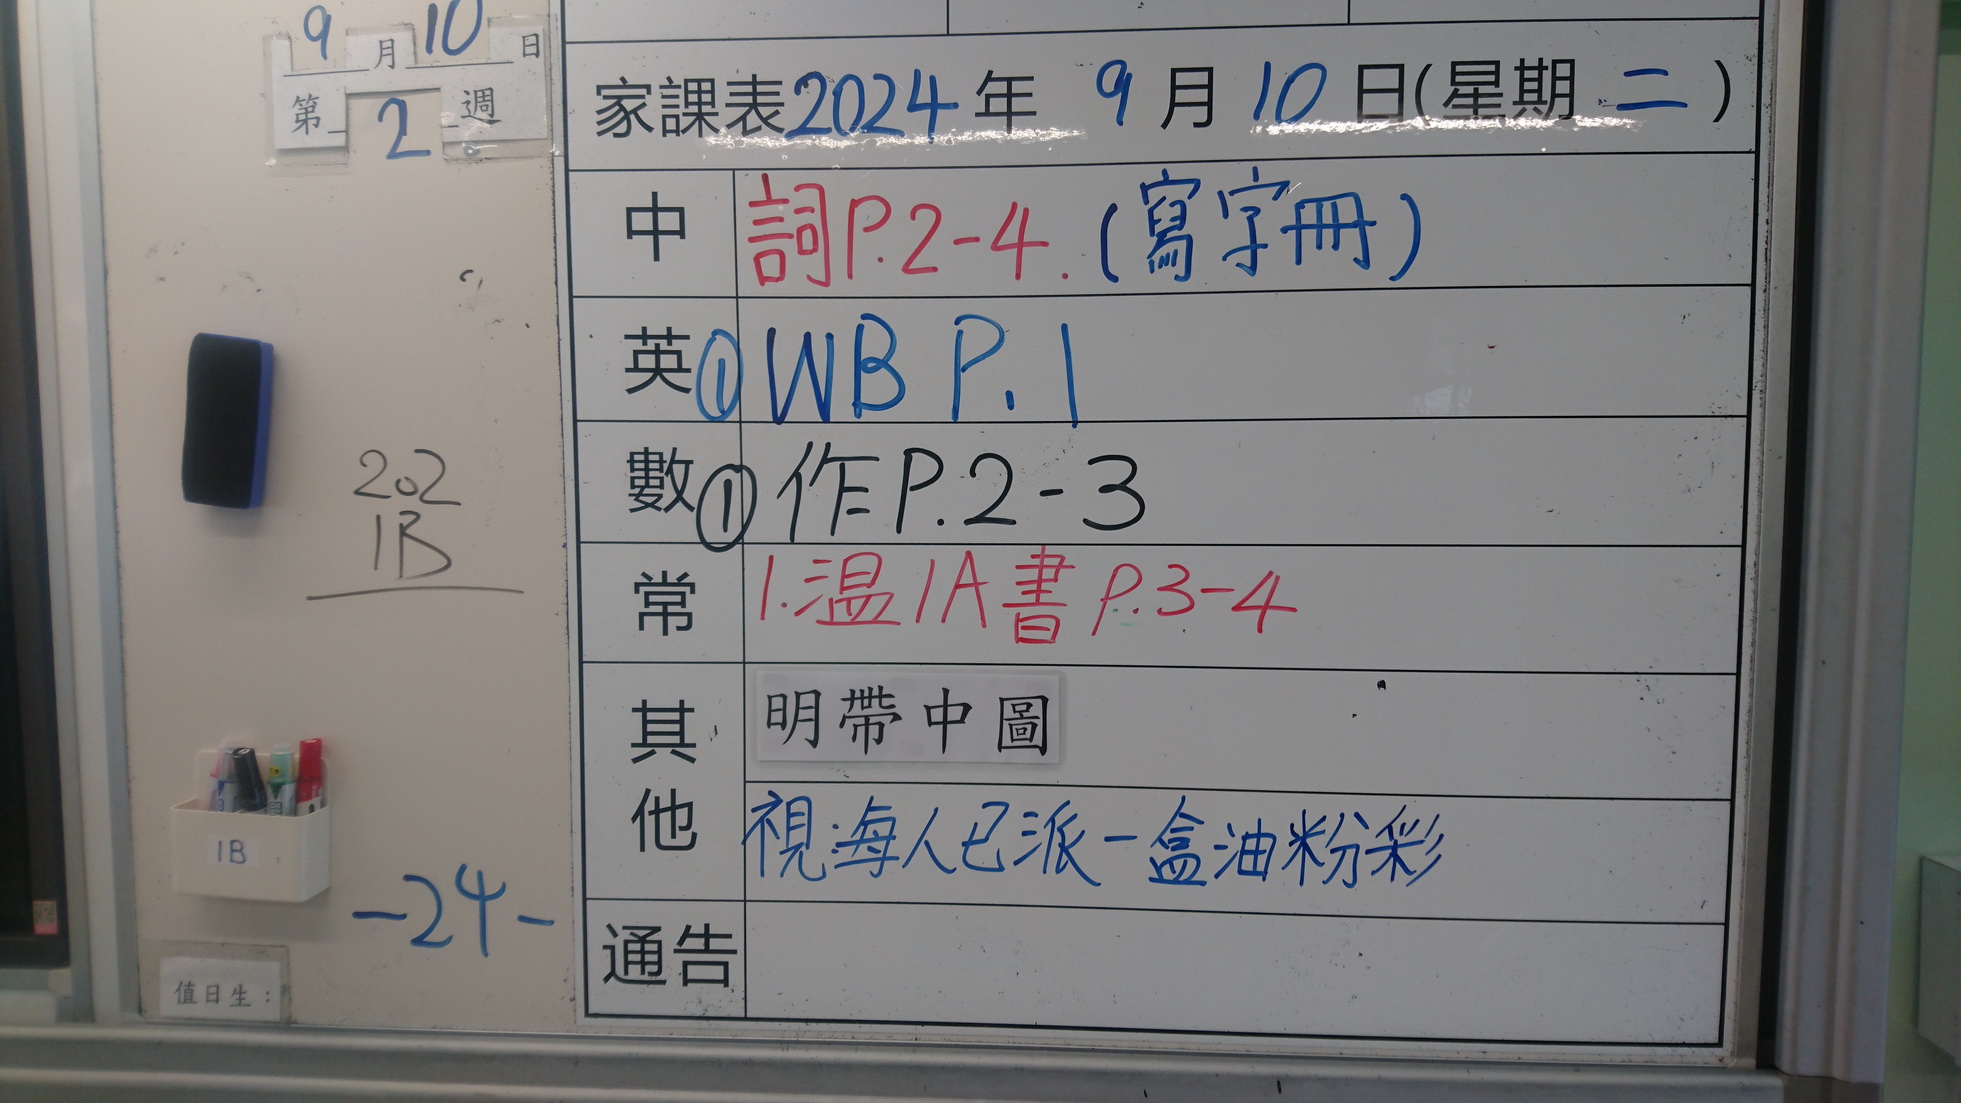 9月10日
第2週
家課表2024年 9月10日(星期二)
中 詞P.2-4.(寫字冊)
英① WB P.1
數① 作P.2-3
常 1.温1A書P.3-4
其他 明帶中圖
視:每人已派一盒油粉彩
通告
202
1B
1B
-24-
值日生: